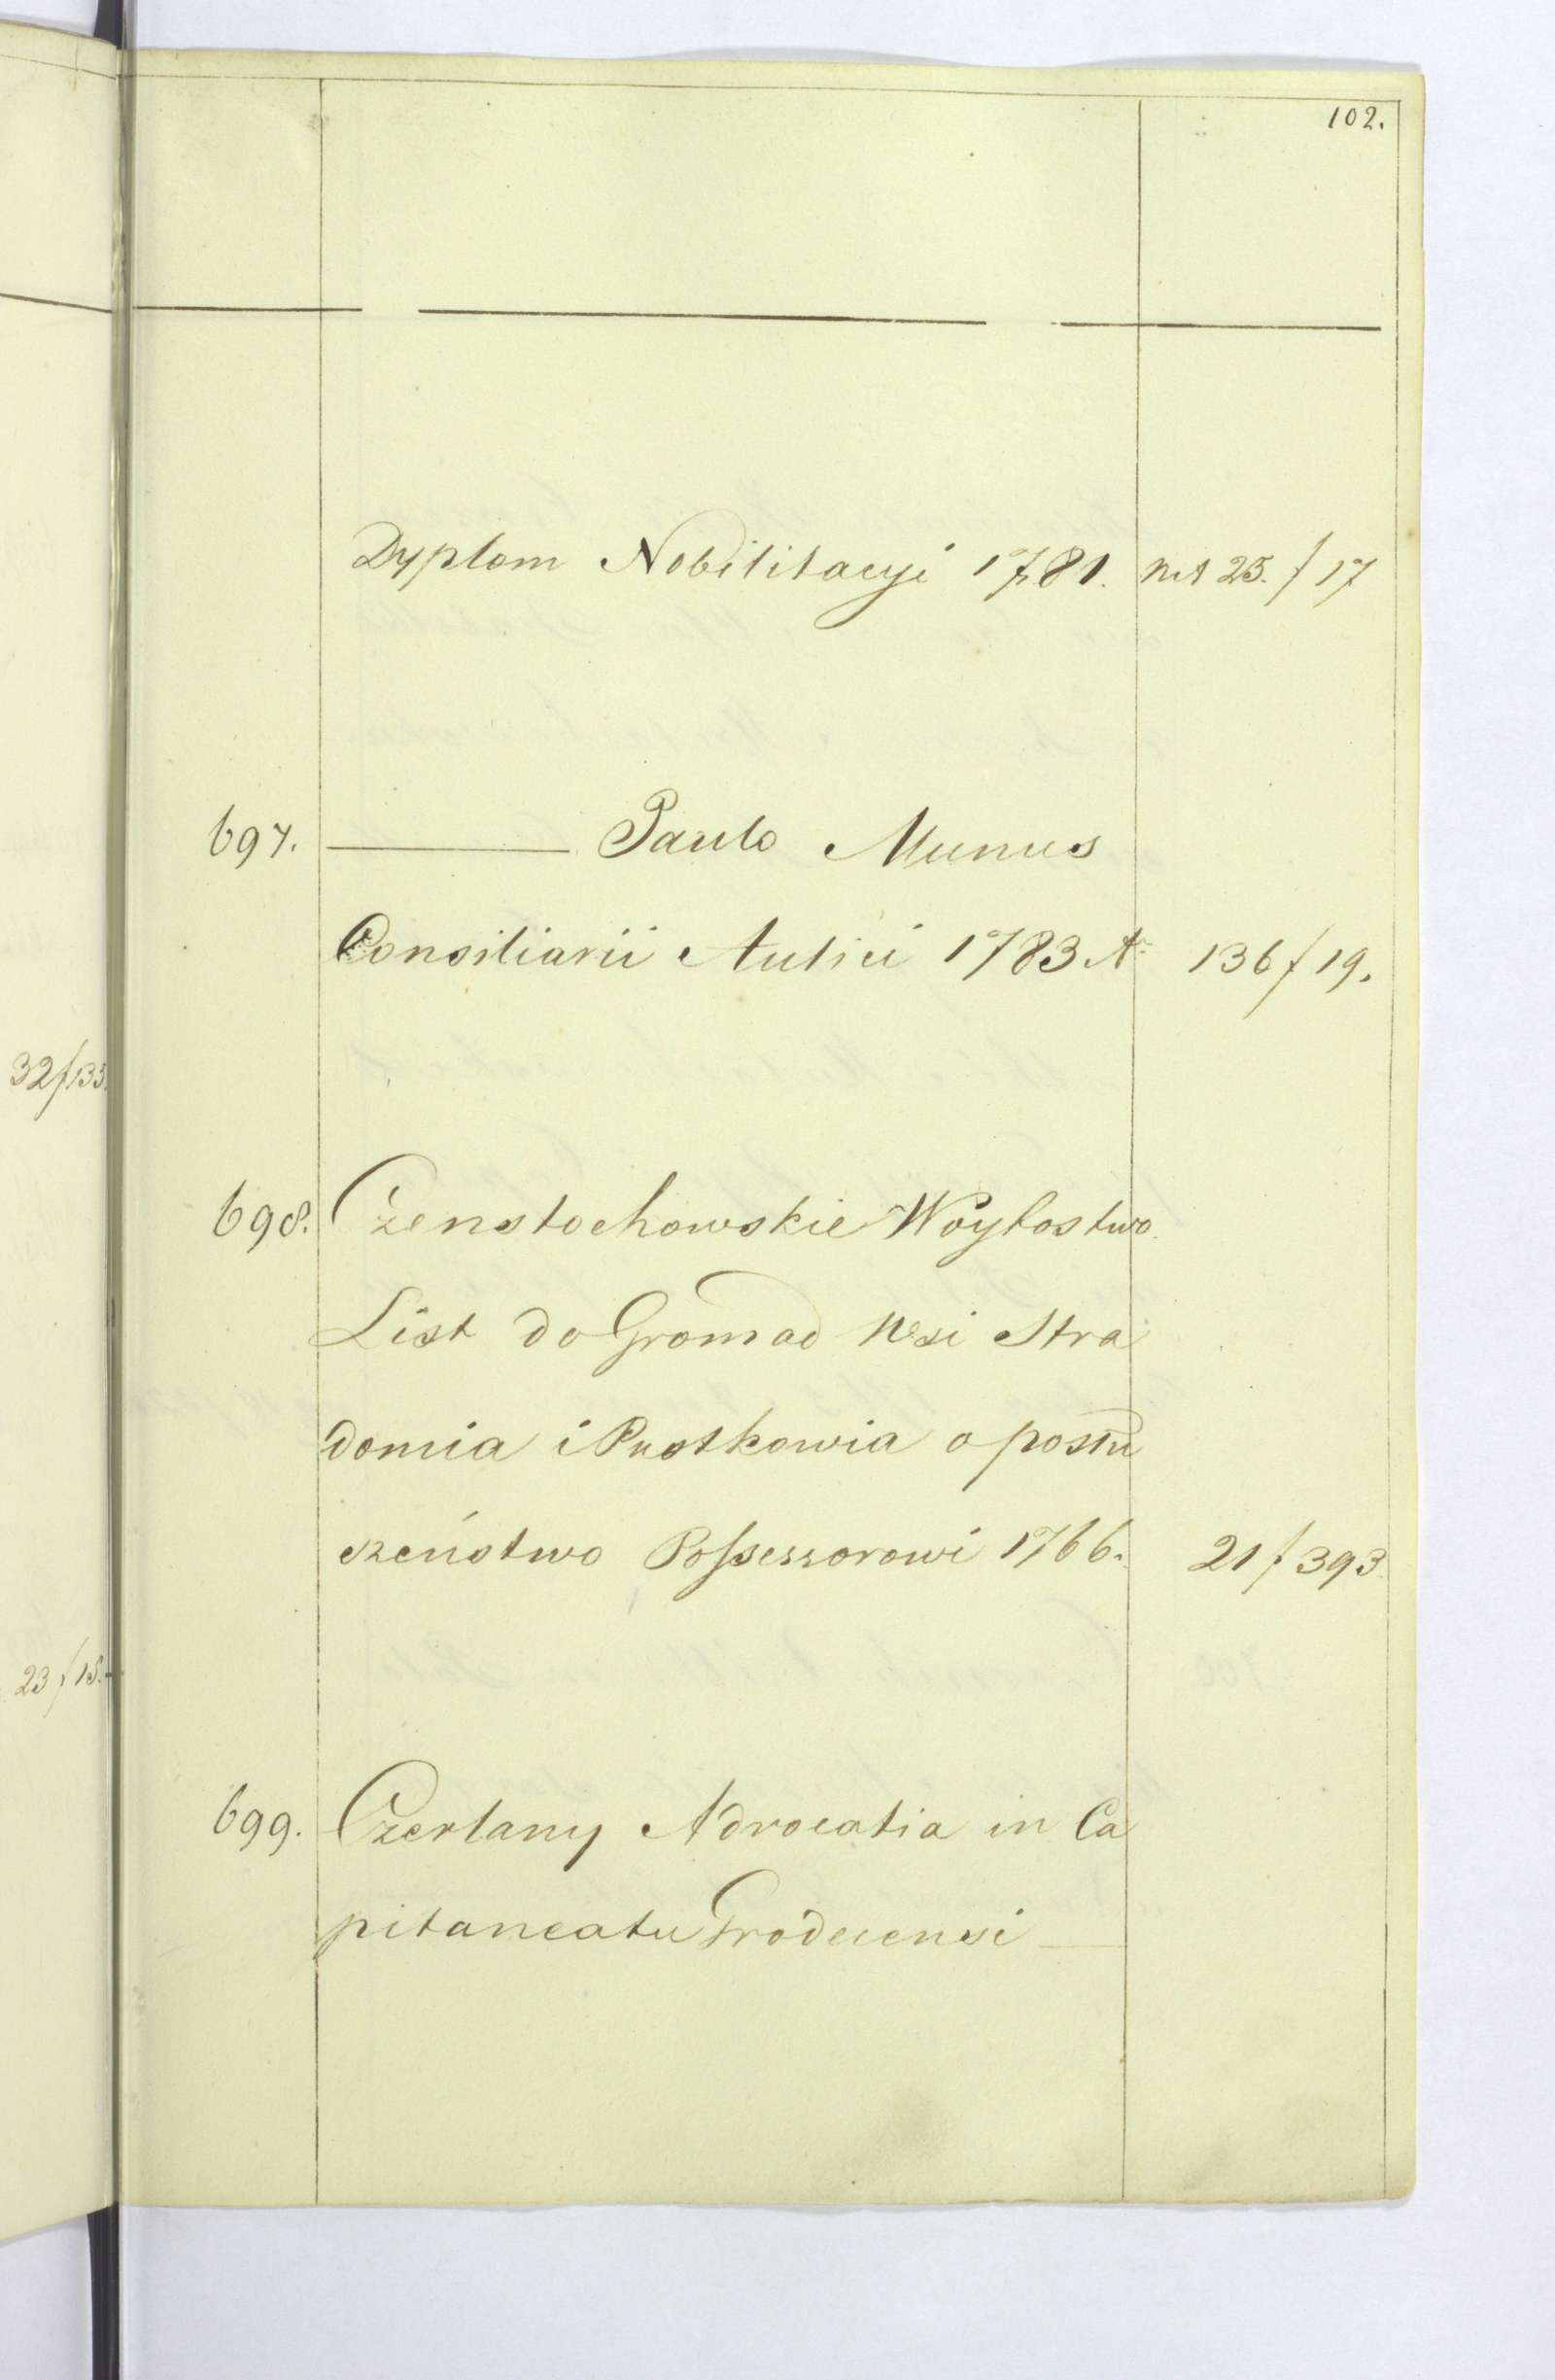 102.
Dyplom Nobilitacyi 1781. 25. f 17
697. Paulo Munus
Consiliarii Aulici 1783 A 136 f 19.
32 f 133.
698. Czenstochowskie Woytostwo
List do Gromad Wsi Stra
domia i Pustkowia o posłu
szeństwo Possessorowi 1766. 21 f 393.
23 f 15.
699. Czerlany Advocatia in Ca
pitaneatu Grodecensi